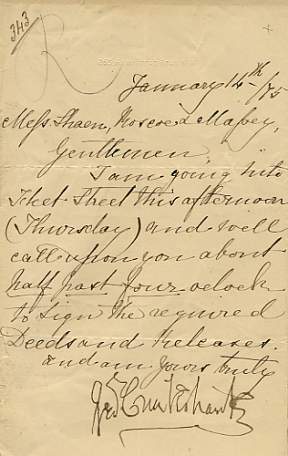 343
January 14th /75
Messrs Shaen, Roscoe & Massey,
Gentlemen,
I am going into
Fleet Street this afternoon
(Thursday) and will
call upon you about
half past four oclock
to sign the required
Deeds and Releases.
and am Yours truly
Geo Cruikshank